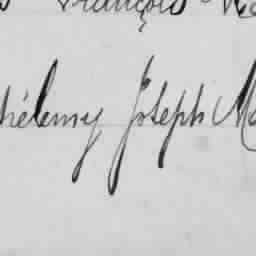 François
hélemy Joseph Ma